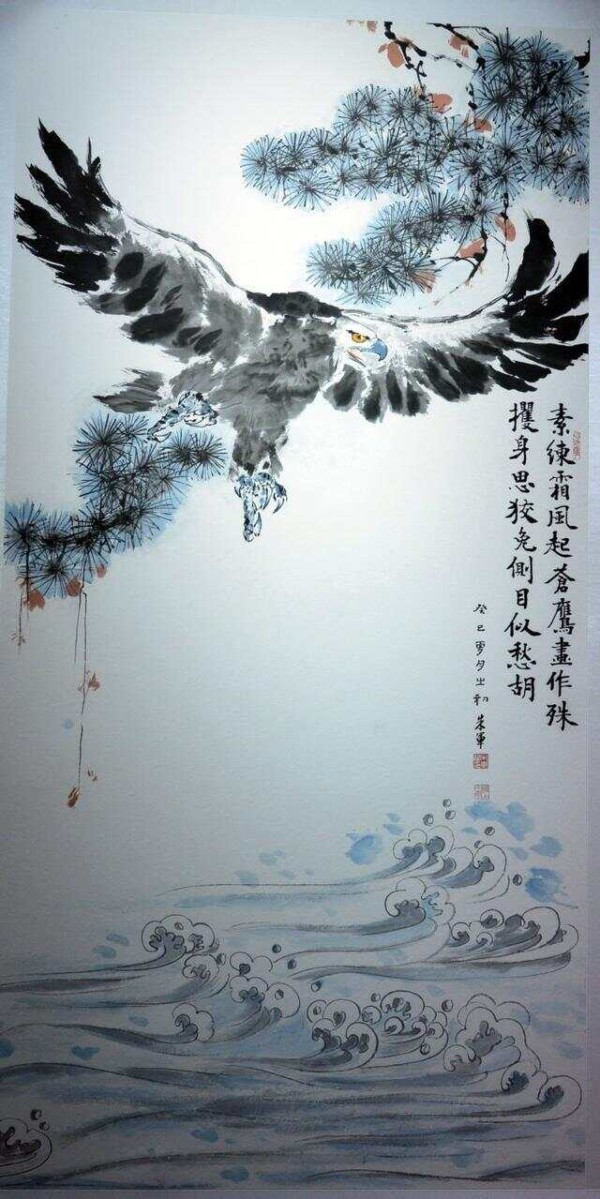 素練霜風起蒼鷹畫作殊
攫身思狡兔側目似愁胡
癸巳夏月之初 朱軍